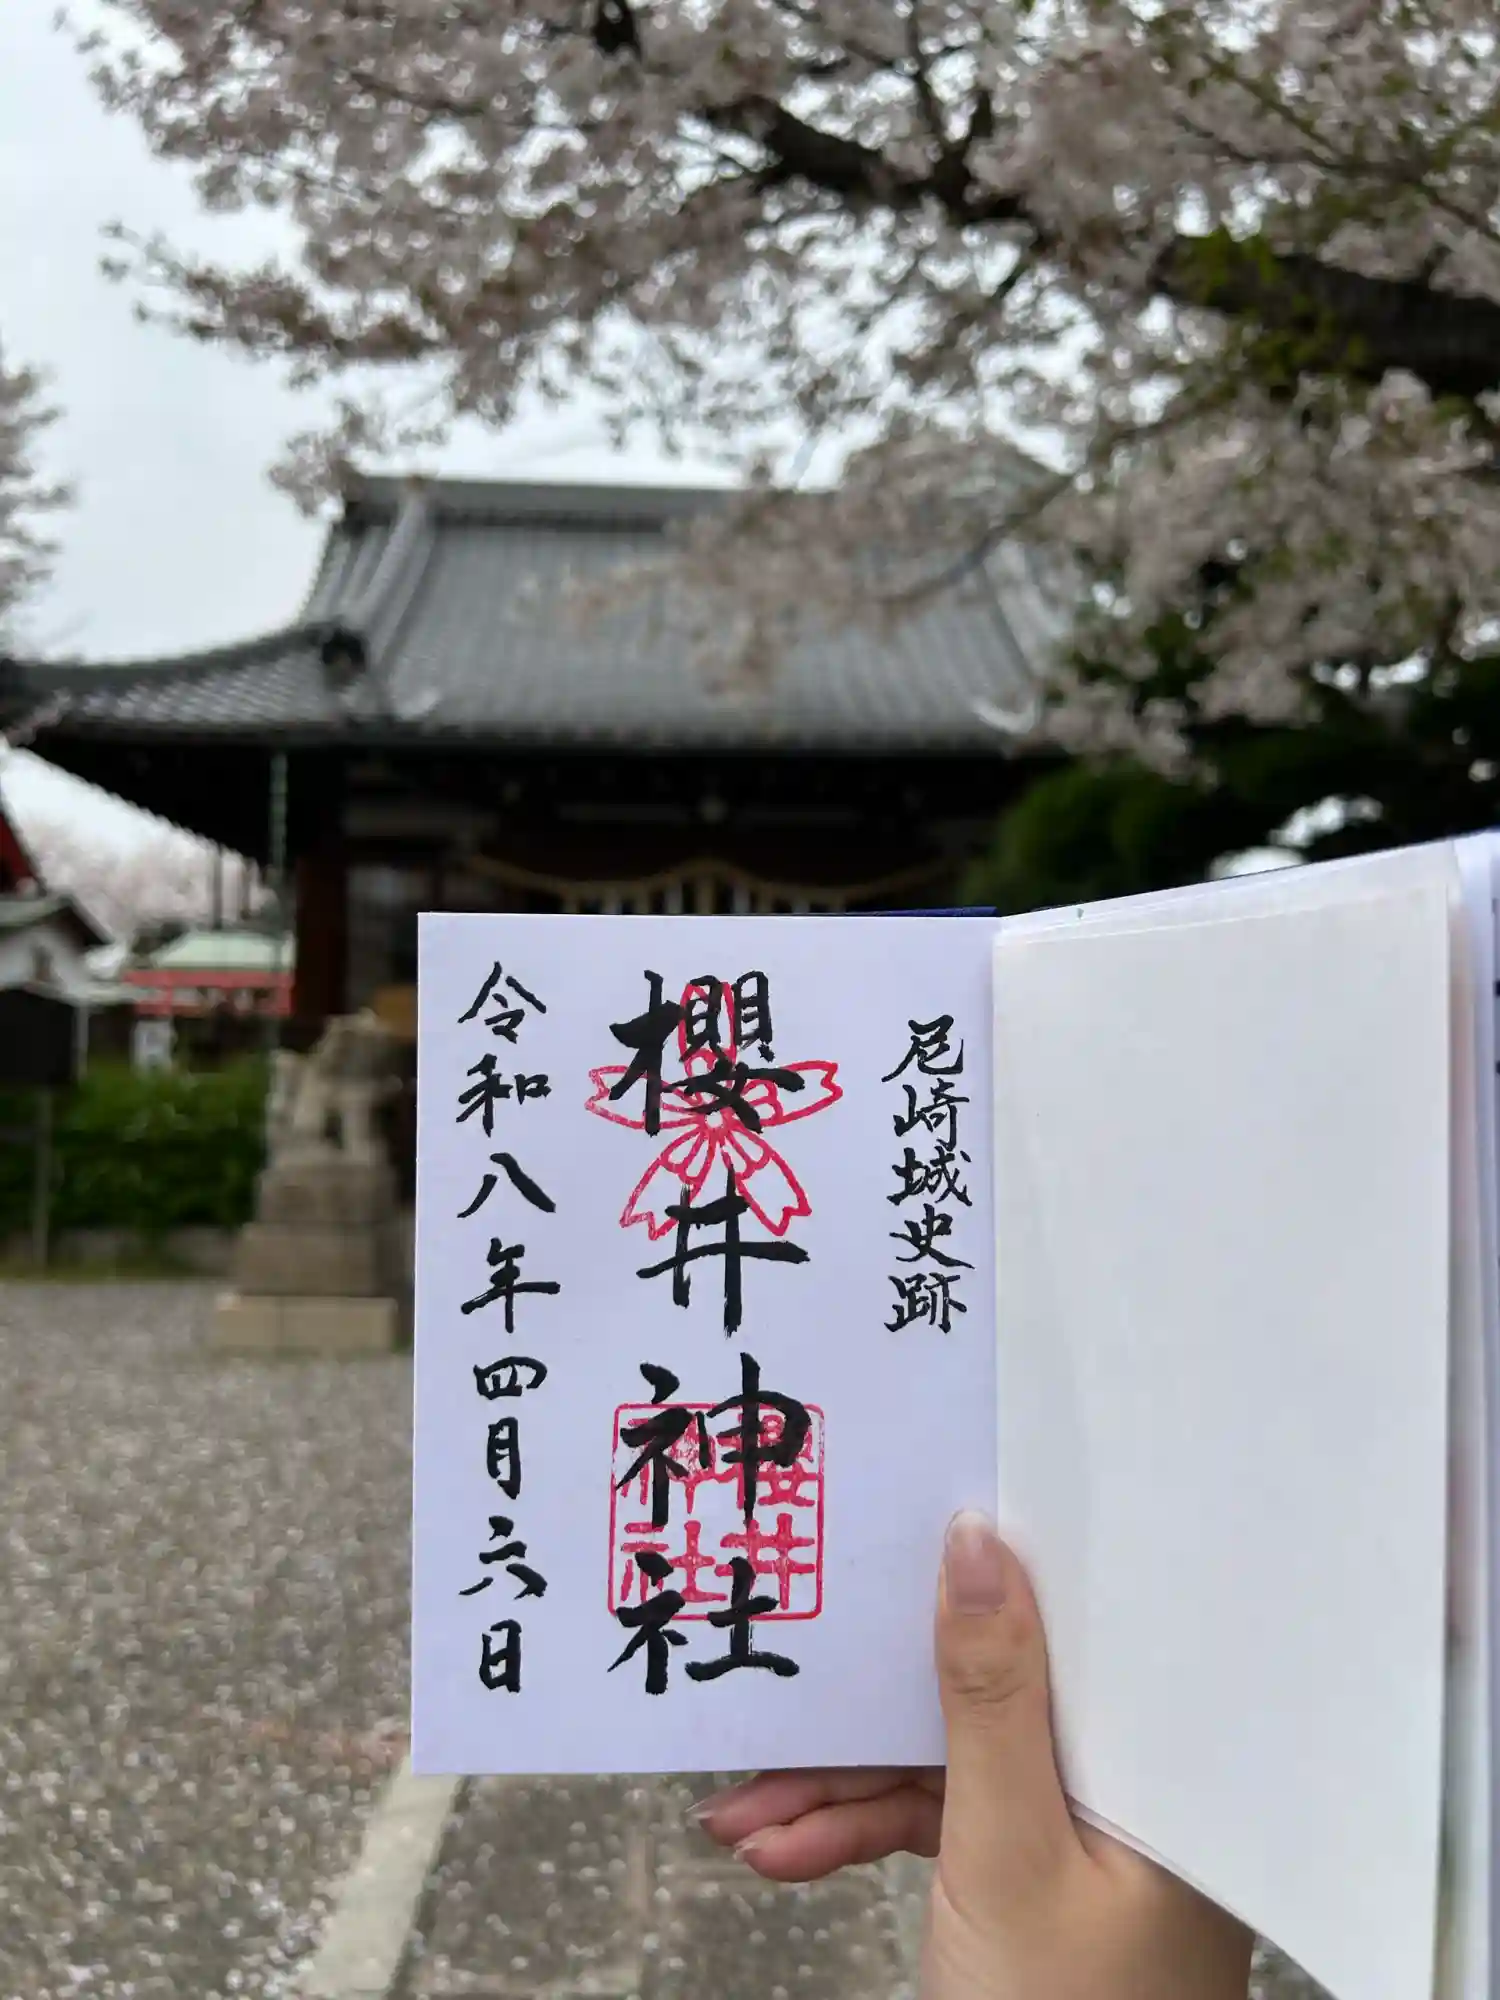 尼崎城史跡
櫻井神社
櫻井
神社
令和八年四月六日